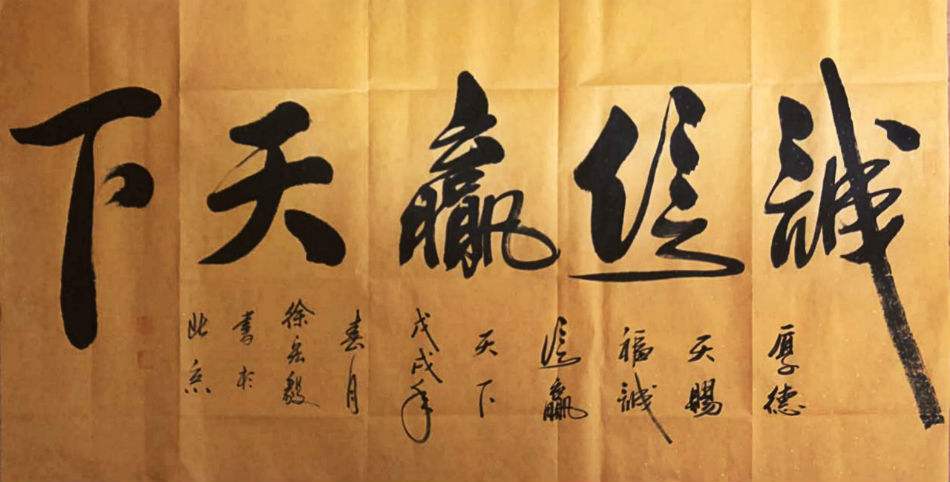 誠信贏天下
厚德
天賜
福誠
信贏
天下
戊戌年
春月
徐毅
書於
北京